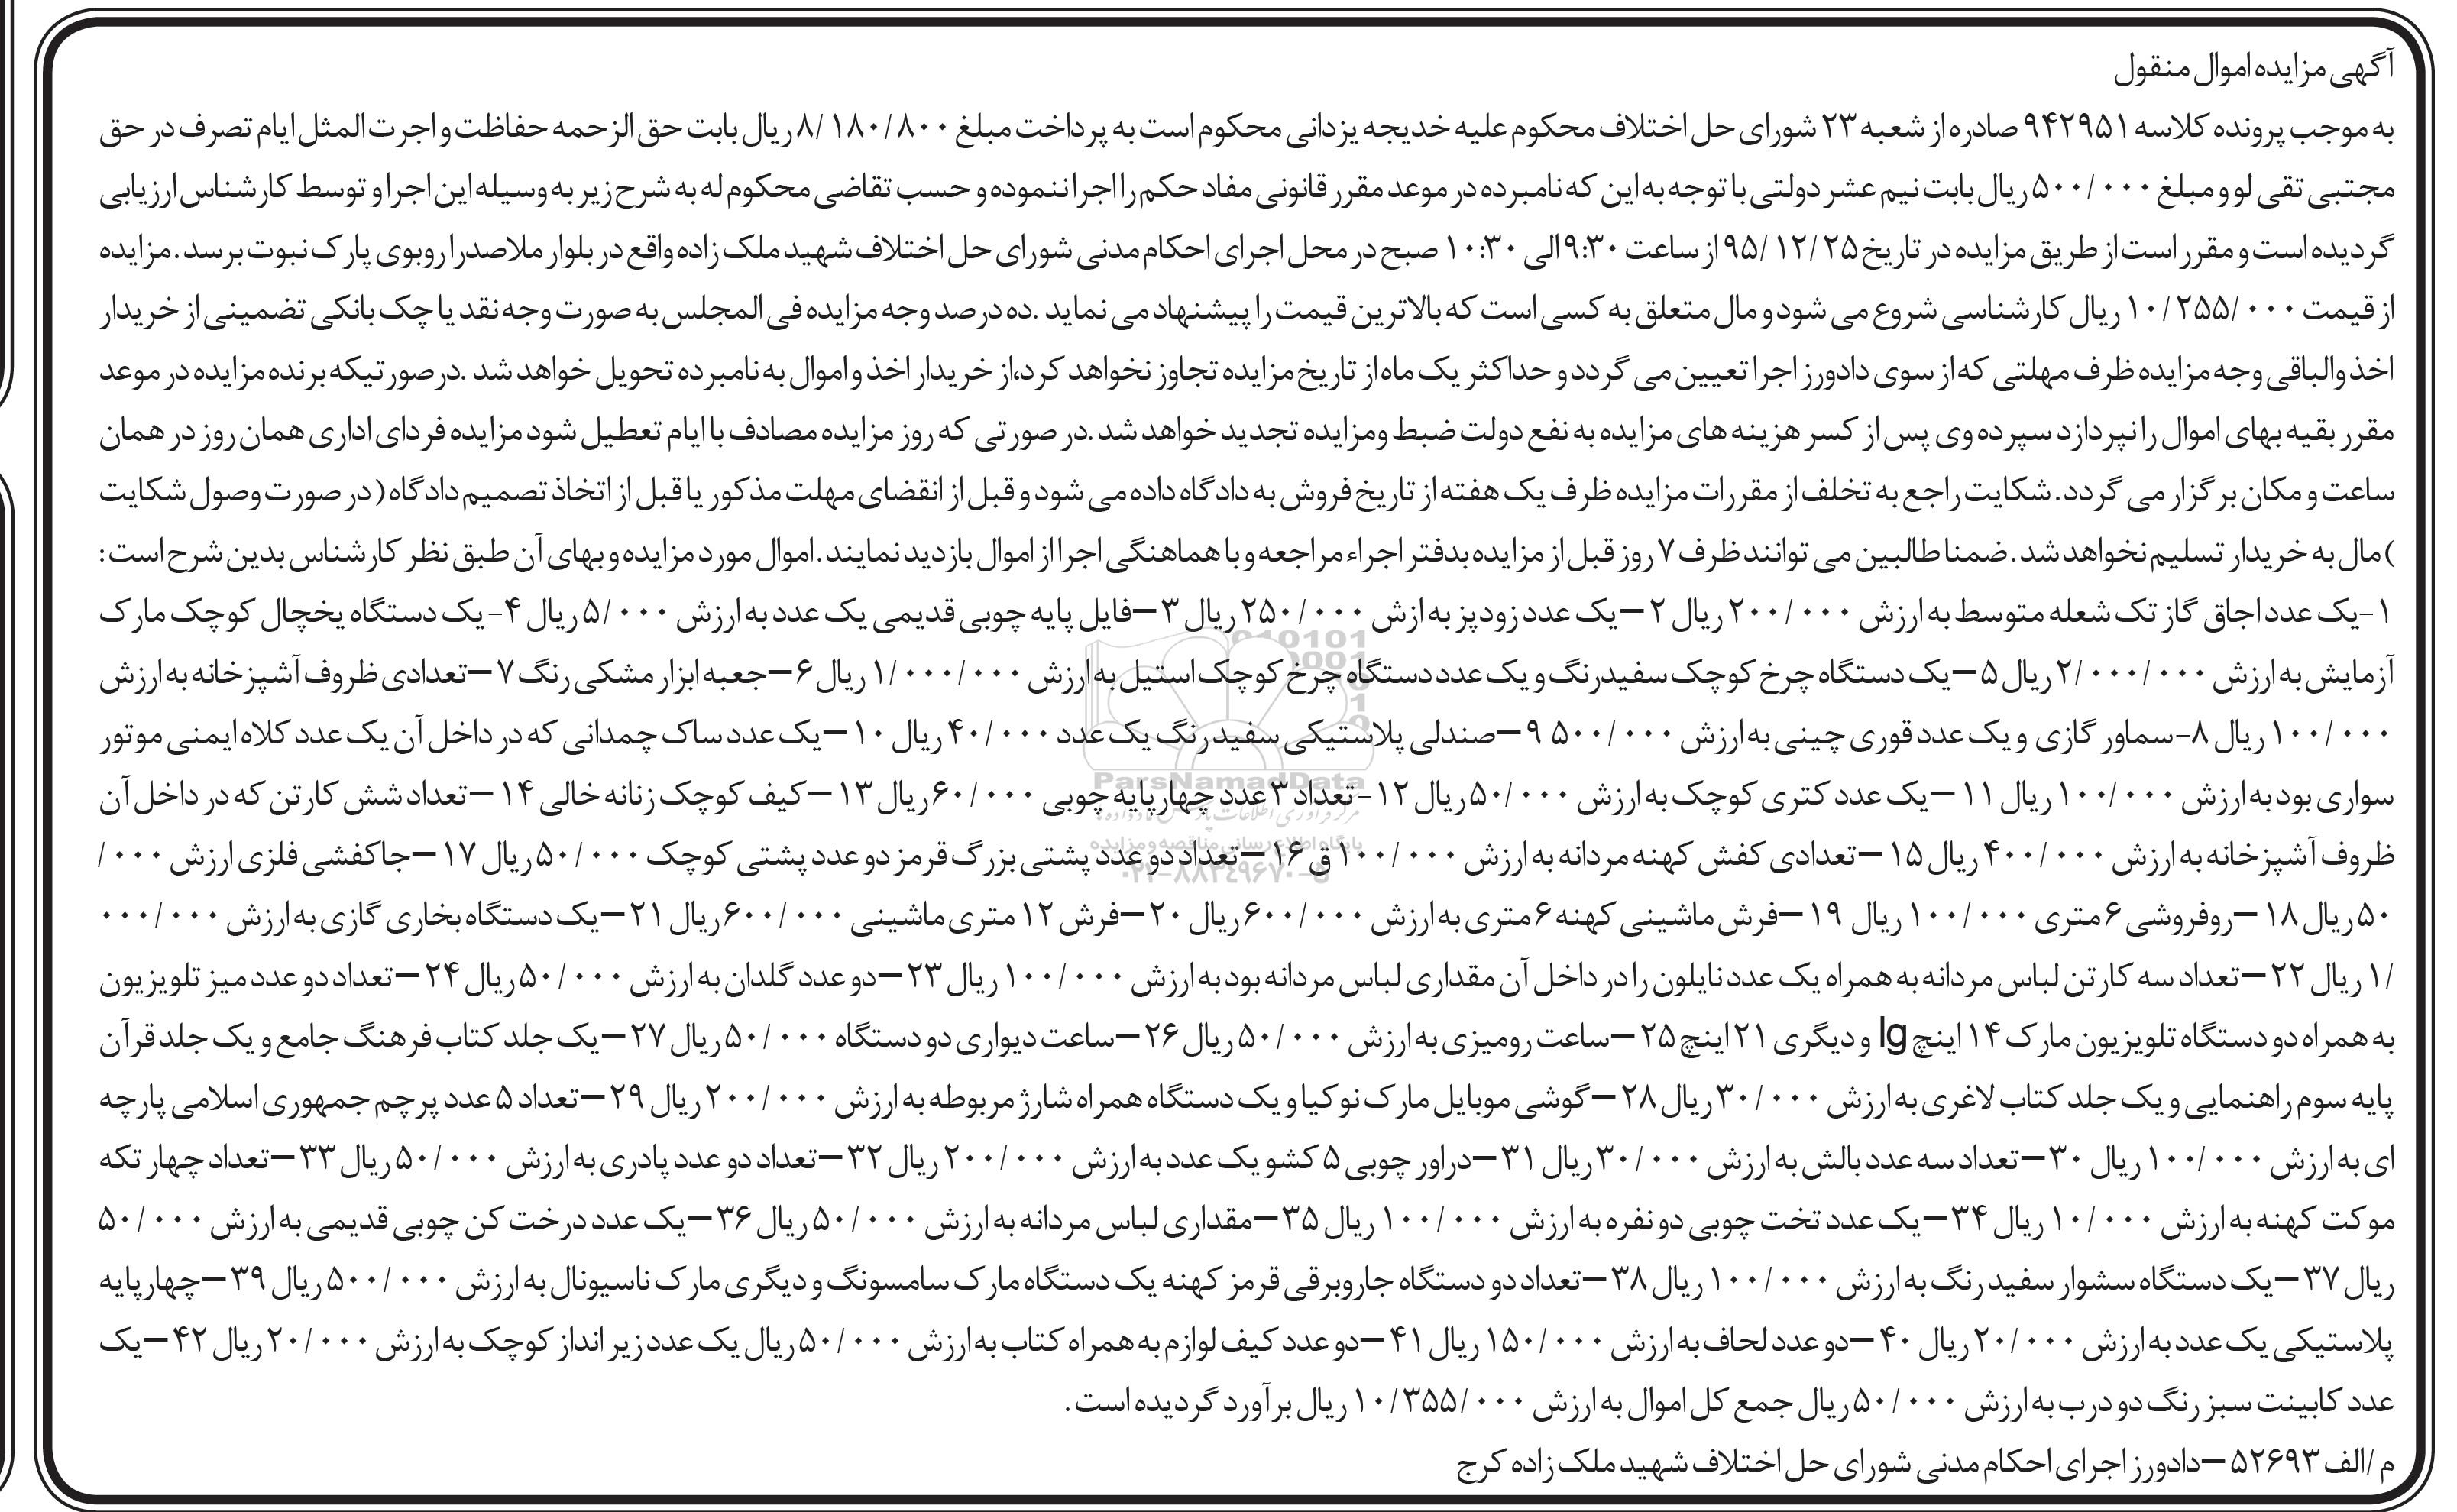 آگهی مزایده اموال منقول
به موجب پرونده کلاسه ۹۴۲۹۵۱ صادره از شعبه ۲۳ شورای حل اختلاف محکوم علیه خدیجه یزدانی محکوم است به پرداخت مبلغ ۸/۱۸۰/۸۰۰ ریال بابت حق الزحمه حفاظت و اجرت المثل ایام تصرف در حق
مجتبی تقی لو و مبلغ ۵۰۰/۰۰۰ ریال بابت نیم عشر دولتی با توجه به این که نامبرده در موعد مقرر قانونی مفاد حکم را اجرا ننموده و حسب تقاضی محکوم له به شرح زیر به وسیله این اجرا و توسط کارشناس ارزیابی
گردیده است و مقرر است از طریق مزایده در تاریخ ۹۵/۱۲/۲۵ از ساعت ۹:۳۰ الی ۱۰:۳۰ صبح در محل اجرای احکام مدنی شورای حل اختلاف شهید ملک زاده واقع در بلوار ملاصدرا روبوی پارک نبوت برسد. مزایده
از قیمت ۱۰/۲۵۵/۰۰۰ ریال کارشناسی شروع می شود و مال متعلق به کسی است که بالاترین قیمت را پیشنهاد می نماید .ده درصد وجه مزایده فی المجلس به صورت وجه نقد یا چک بانکی تضمینی از خریدار
اخذ والباقی وجه مزایده ظرف مهلتی که از سوی دادورز اجرا تعیین می گردد و حداکثر یک ماه از تاریخ مزایده تجاوز نخواهد کرد،از خریدار اخذ و اموال به نامبرده تحویل خواهد شد .درصورتیکه برنده مزایده در موعد
مقرر بقیه بهای اموال را نپردازد سپرده وی پس از کسر هزینه های مزایده به نفع دولت ضبط ومزایده تجدید خواهد شد .در صورتی که روز مزایده مصادف با ایام تعطیل شود مزایده فردای اداری همان روز در همان
ساعت و مکان برگزار می گردد. شکایت راجع به تخلف از مقررات مزایده ظرف یک هفته از تاریخ فروش به دادگاه داده می شود و قبل از انقضای مهلت مذکور یا قبل از اتخاذ تصمیم دادگاه ( در صورت وصول شکایت
) مال به خریدار تسلیم نخواهد شد. ضمنا طالبین می توانند ظرف ۷ روز قبل از مزایده بدفتر اجراء مراجعه و با هماهنگی اجرا از اموال بازدید نمایند. اموال مورد مزایده و بهای آن طبق نظر کارشناس بدین شرح است :
۱-یک عدد اجاق گاز تک شعله متوسط به ارزش ۲۰۰/۰۰۰ ریال ۲ –یک عدد زودپز به ازش ۲۵۰/۰۰۰ ریال ۳ –فایل پایه چوبی قدیمی یک عدد به ارزش ۵/۰۰۰ ریال ۴- یک دستگاه یخچال کوچک مارک
آزمایش به ارزش ۲/۰۰۰/۰۰۰ ریال ۵ –یک دستگاه چرخ کوچک سفیدرنگ و یک عدد دستگاه چرخ کوچک استیل به ارزش ۱/۰۰۰/۰۰۰ ریال ۶ –جعبه ابزار مشکی رنگ ۷ –تعدادی ظروف آشپزخانه به ارزش
۱۰۰/۰۰۰ ریال ۸-سماور گازی و یک عدد قوری چینی به ارزش ۵۰۰/۰۰۰ ۹ –صندلی پلاستیکی سفید رنگ یک عدد ۴۰/۰۰۰ ریال ۱۰ –یک عدد ساک چمدانی که در داخل آن یک عدد کلاه ایمنی موتور
سواری بود به ارزش ۱۰۰/۰۰۰ ریال ۱۱ –یک عدد کتری کوچک به ارزش ۵۰/۰۰۰ ریال ۱۲-تعداد ۳ عدد چهارپایه چوبی ۶۰/۰۰۰ ریال ۱۳ –کیف کوچک زنانه خالی ۱۴ –تعداد شش کارتن که در داخل آن
ظروف آشپزخانه به ارزش ۴۰۰/۰۰۰ ریال ۱۵ –تعدادی کفش کهنه مردانه به ارزش ۱۰۰/۰۰۰ ق ۱۶ –تعداد دو عدد پشتی بزرگ قرمز دو عدد پشتی کوچک ۵۰/۰۰۰ ریال ۱۷ –جاکفشی فلزی ارزش ۰۰۰/
۵۰ ریال ۱۸ –روفروشی ۶ متری ۱۰۰/۰۰۰ ریال ۱۹ –فرش ماشینی کهنه ۶ متری به ارزش ۶۰۰/۰۰۰ ریال ۲۰ –فرش ۱۲ متری ماشینی ۶۰۰/۰۰۰ ریال ۲۱ –یک دستگاه بخاری گازی به ارزش ۰۰۰/۰۰۰
/۱ ریال ۲۲ –تعداد سه کارتن لباس مردانه به همراه یک عدد نایلون را در داخل آن مقداری لباس مردانه بود به ارزش ۱۰۰/۰۰۰ ریال ۲۳ –دو عدد گلدان به ارزش ۵۰/۰۰۰ ریال ۲۴ –تعداد دو عدد میز تلویزیون
به همراه دو دستگاه تلویزیون مارک ۱۴ اینچ lg و دیگری ۲۱ اینچ ۲۵ –ساعت رومیزی به ارزش ۵۰/۰۰۰ ریال ۲۶ –ساعت دیواری دو دستگاه ۵۰/۰۰۰ ریال ۲۷ –یک جلد کتاب فرهنگ جامع و یک جلد قرآن
پایه سوم راهنمایی و یک جلد کتاب لاغری به ارزش ۳۰/۰۰۰ ریال ۲۸ –گوشی موبایل مارک نوکیا و یک دستگاه همراه شارژ مربوطه به ارزش ۲۰۰/۰۰۰ ریال ۲۹ –تعداد ۵ عدد پرچم جمهوری اسلامی پارچه
ای به ارزش ۱۰۰/۰۰۰ ریال ۳۰ –تعداد سه عدد بالش به ارزش ۳۰/۰۰۰ ریال ۳۱ –دراور چوبی ۵ کشو یک عدد به ارزش ۲۰۰/۰۰۰ ریال ۳۲ –تعداد دو عدد پادری به ارزش ۵۰/۰۰۰ ریال ۳۳ –تعداد چهار تکه
موکت کهنه به ارزش ۱۰/۰۰۰ ریال ۳۴ –یک عدد تخت چوبی دو نفره به ارزش ۱۰۰/۰۰۰ ریال ۳۵ –مقداری لباس مردانه به ارزش ۵۰/۰۰۰ ریال ۳۶ –یک عدد درخت کن چوبی قدیمی به ارزش ۵۰/۰۰۰
ریال ۳۷ –یک دستگاه سشوار سفید رنگ به ارزش ۱۰۰/۰۰۰ ریال ۳۸ –تعداد دو دستگاه جاروبرقی قرمز کهنه یک دستگاه مارک سامسونگ و دیگری مارک ناسیونال به ارزش ۵۰۰/۰۰۰ ریال ۳۹ –چهارپایه
پلاستیکی یک عدد به ارزش ۲۰/۰۰۰ ریال ۴۰ –دو عدد لحاف به ارزش ۱۵۰/۰۰۰ ریال ۴۱ –دو عدد کیف لوازم به همراه کتاب به ارزش ۵۰/۰۰۰ ریال یک عدد زیر انداز کوچک به ارزش ۲۰/۰۰۰ ریال ۴۲ –یک
عدد کابینت سبز رنگ دو درب به ارزش ۵۰/۰۰۰ ریال جمع کل اموال به ارزش ۱۰/۳۵۵/۰۰۰ ریال برآورد گردیده است .
م /الف ۵۲۶۹۳ –دادورز اجرای احکام مدنی شورای حل اختلاف شهید ملک زاده کرج
ParsNamadData
پایگاه اطلاع رسانی مناقصه و مزایده
۰۲۱-۸۸۳۴۹۶۷۰-۵